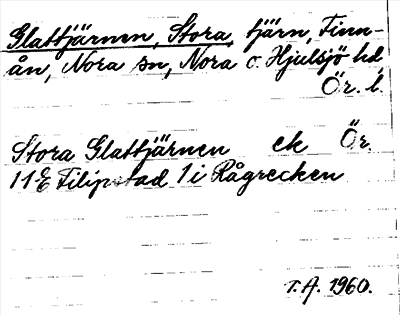 Glattjärnen, Stora, tjärn, Finn-
ån, Nora sn, Nora o. Hjulsjö hd
Ör. l.
Stora Glattjärnen ek Ör.
11E Filipstad 1i Rågrecken
T.A. 1960.